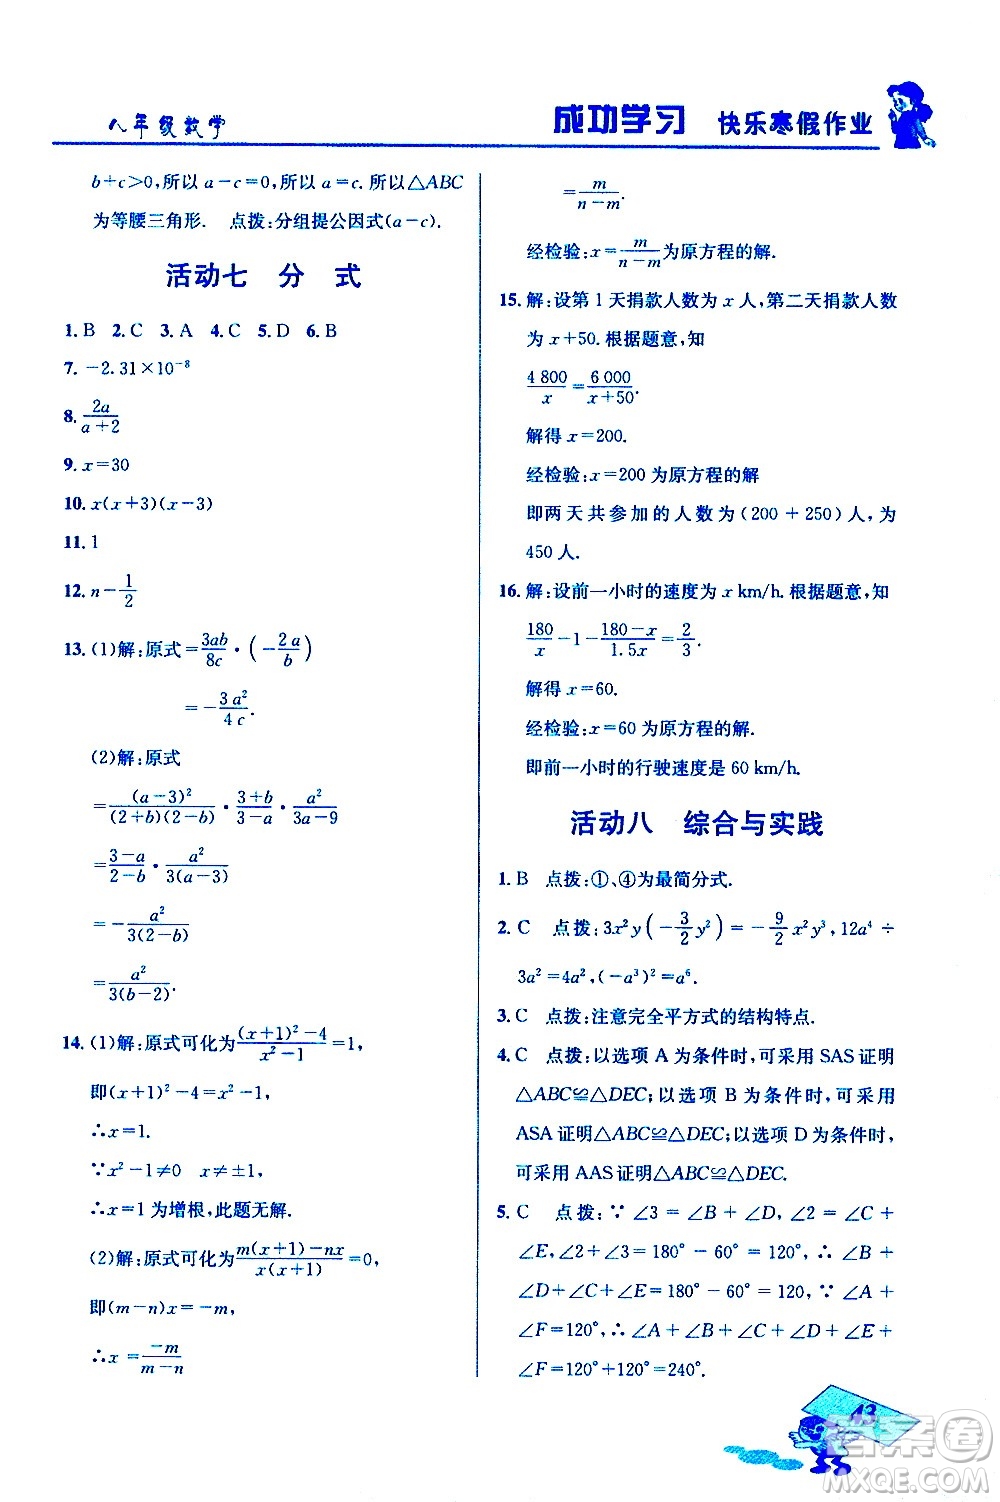 八年级数学
成功学习 快乐寒假作业
b+c>0,所以 a-c=0,所以 a=c.所以△ABC
为等腰三角形. 点拨:分组提公因式(a-c).
活动七 分 式
1. B 2. C 3. A 4. C 5. D 6. B
7. -2.31×10⁻⁸
8. 2a/(a+2)
9. x=30
10. x(x+3)(x-3)
11. 1
12. n-1/2
13. (1)解:原式=3ab/8c·(-2a/b)
=-3a²/4c.
(2)解:原式
=(a-3)²/((2+b)(2-b))·(3+b)/(3-a)·a²/(3a-9)
=(3-a)/(2-b)·a²/(3(a-3))
=-a²/(3(2-b))
=a²/(3(b-2)).
14. (1)解:原式可化为((x+1)²-4)/(x²-1)=1,
即(x+1)²-4=x²-1,
∴x=1.
∵x²-1≠0 x≠±1.
∴x=1 为增根,此题无解.
(2)解:原式可化为(m(x+1)-nx)/(x(x+1))=0,
即(m-n)x=-m,
∴x=-m/(m-n)
=m/(n-m).
经检验:x=m/(n-m)为原方程的解.
15. 解:设第 1 天捐款人数为 x 人,第二天捐款人数
为 x+50.根据题意,知
4 800/x=6 000/(x+50).
解得 x=200.
经检验:x=200 为原方程的解
即两天共参加的人数为(200+250)人,为
450 人.
16. 解:设前一小时的速度为 x km/h.根据题意,知
180/x-1-(180-x)/1.5x=2/3.
解得 x=60.
经检验:x=60 为原方程的解.
即前一小时的行驶速度是 60 km/h.
活动八 综合与实践
1. B 点拨:①、④为最简分式.
2. C 点拨:3x²y(-3/2y²)=-9/2x²y³,12a⁴÷
3a²=4a²,(-a³)²=a⁶.
3. C 点拨:注意完全平方式的结构特点.
4. C 点拨:以选项 A 为条件时,可采用 SAS 证明
△ABC≌△DEC;以选项 B 为条件时,可采用
ASA 证明△ABC≌△DEC;以选项 D 为条件时,
可采用 AAS 证明△ABC≌△DEC.
5. C 点拨:∵∠3=∠B+∠D,∠2=∠C+
∠E,∠2+∠3=180°-60°=120,∴∠B+
∠D+∠C+∠E=180°-60°=120,∵∠A+
∠F=120°,∴∠A+∠B+∠C+∠D+∠E+
∠F=120°+120°=240°.
43
答案圈
MXQE.COM